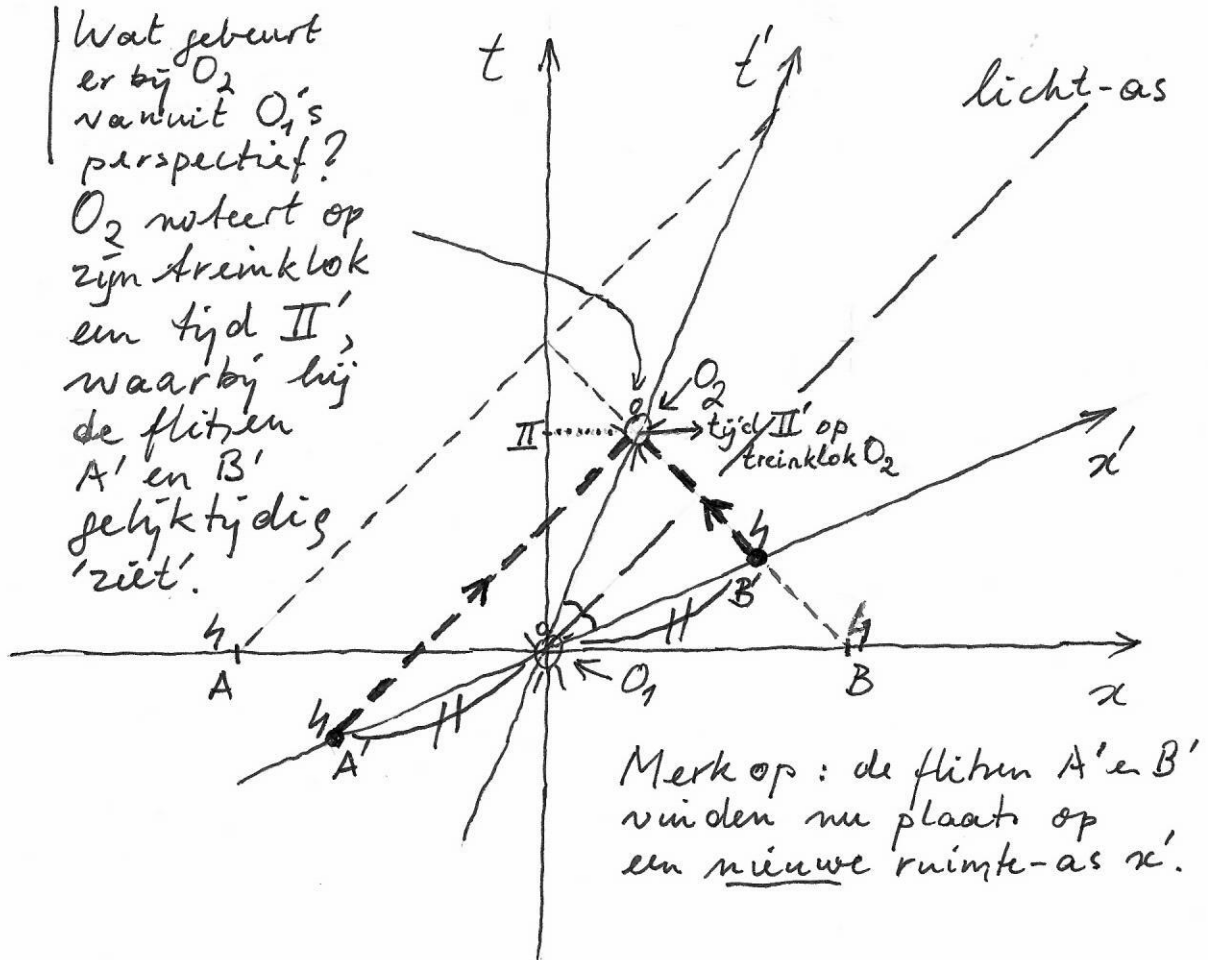 Wat gebeurt
er bij O₂
vanuit O₁'s
perspectief?
O₂ noteert op
zijn treinklok
een tijd II',
waarbij hij
de flitsen
A' en B'
gelijktijdig
'ziet'.
t
t'
licht-as
O₂
II
tijd II' op
treinklok O₂
x'
B'
A
O₁
B
x
A'
Merk op: de flitsen A' en B'
vinden nu plaats op
een nieuwe ruimte-as x'.